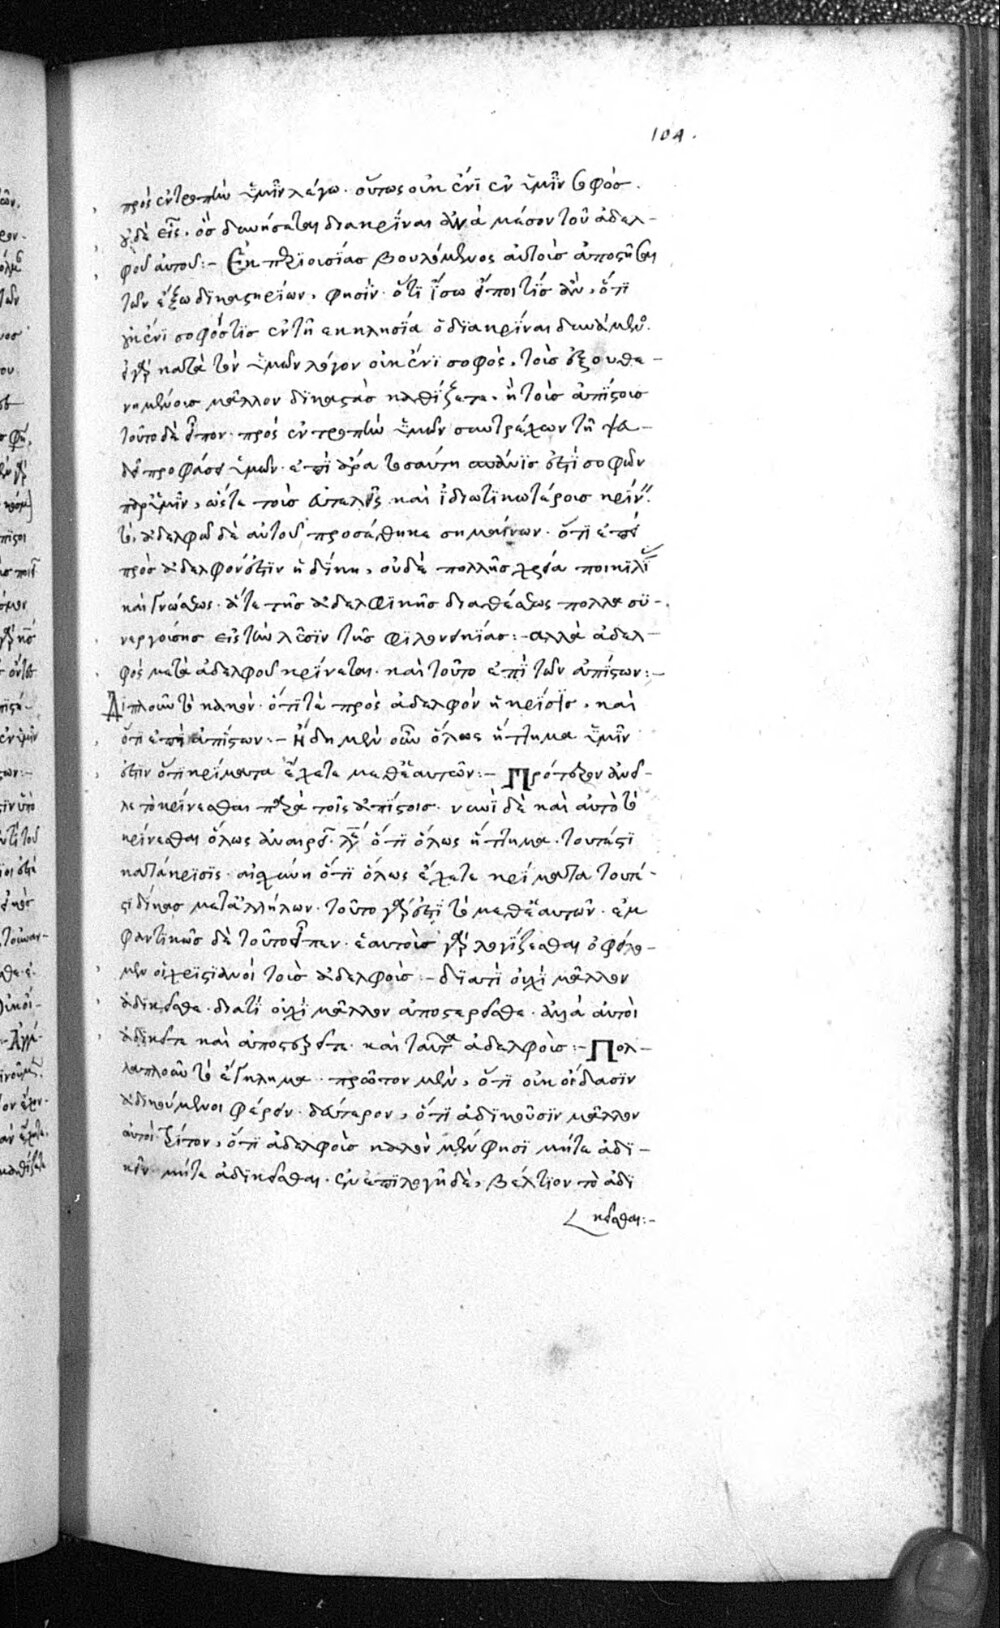 104.
πρὸς ἐντροπὴν ὑμῖν λέγω· οὕτως οὐκ ἔνι ἐν ὑμῖν σοφὸς
οὐδὲ εἷς, ὃς δυνήσεται διακρῖναι ἀνὰ μέσον τοῦ ἀδελ-
φοῦ αὐτοῦ:- Ἐκ περιουσίας βουλόμενος αὐτοὺς ἀποστῆσαι
τῶν ἔξω δικαστηρίων, φησὶν· ὅτι ἴσως εἴποι τὶς ἂν, ὅτι
οὐκ ἔνι σοφός τις ἐν τῇ ἐκκλησίᾳ ὁ διακρῖναι δυνάμενος.
εἰ γὰρ κατὰ τὸν ὑμῶν λόγον οὐκ ἔνι σοφός, τοὺς ἐξουθε-
νημένους μᾶλλον δικαστὰς καθίζετε, ἢ τοὺς ἀπίστους
τοῦτο δὲ εἶπον πρὸς ἐντροπὴν ὑμῶν συντρέχων τῇ ψευ-
δεῖ προφάσει ὑμῶν· ἐπεὶ ἆρα τοσαύτη σπάνις ἐστὶ σοφῶν
παρ' ὑμῖν, ὥστε τοὺς εὐτελεῖς καὶ ἰδιωτικωτέρους κρίνειν.
τὸ, ἀδελφοῦ δὲ αὐτοῦ προσέθηκε σημαίνων ὅτι ἐπεὶ
πρὸς ἀδελφόν ἐστιν ἡ δίκη, οὐδὲ πολλῆς χρεία ποικιλί
καὶ γνώσεως· ἅτε τῆς ἀδελφικῆς διαθέσεως πολλὰ συ-
νεργούσης εἰς τὴν λύσιν τῆς φιλονεικίας:- ἀλλὰ ἀδελ-
φὸς μετὰ ἀδελφοῦ κρίνεται· καὶ τοῦτο ἐπὶ τῶν ἀπίστων:-
Διπλοῦν τὸ κακόν· ὅτι τὲ πρὸς ἀδελφὸν ἡ κρίσις, καὶ
ὅτι ἐπὶ ἀπίστων:- Ἤδη μὲν οὖν ὅλως ἥττημα ὑμῖν
ἐστιν ὅτι κρίματα ἔχετε μεθ' ἑαυτῶν:- Πρότερον ἀνεῖ-
λε τὸ κρίνεσθαι παρὰ τοῖς ἀπίστοις· νυνὶ δὲ καὶ αὐτὸ τὸ
κρίνεσθαι ὅλως ἀναιρεῖ λέγων ὅτι ὅλως ἥττημα· τουτέστι
κατάκρισις· αἰσχύνη ὅτι ὅλως ἔχετε κρίματα τουτέ-
στι δίκας μετ' ἀλλήλων· τοῦτο γάρ ἐστι τὸ μεθ' ἑαυτῶν· ἐμ
φαντικῶς δὲ τοῦτο εἶπεν· ἑαυτοὺς γὰρ λογίζεσθαι ὀφείλο-
μεν οἱ χριστιανοὶ τοὺς ἀδελφούς:- διατί οὐχὶ μᾶλλον
ἀδικεῖσθε· διατί οὐχὶ μᾶλλον ἀποστερεῖσθε· ἀλλὰ αὐτοὶ
ἀδικεῖτε καὶ ἀποστερεῖτε· καὶ ταῦτα ἀδελφούς:- Πολ-
λαπλοῦν τὸ ἔγκλημα· πρῶτον μὲν, ὅτι οὐκ οἴδασιν
ἀδικούμενοι φέρειν· δεύτερον, ὅτι ἀδικοῦσιν μᾶλλον
αὐτοί· τρίτον, ὅτι ἀδελφοὺς καλὸν μὲν φησὶ μήτε ἀδι-
κεῖν μήτε ἀδικεῖσθαι. ἐν ἐπιλογῇ δὲ, βέλτιον τὸ ἀδι
κεῖσθαι:-